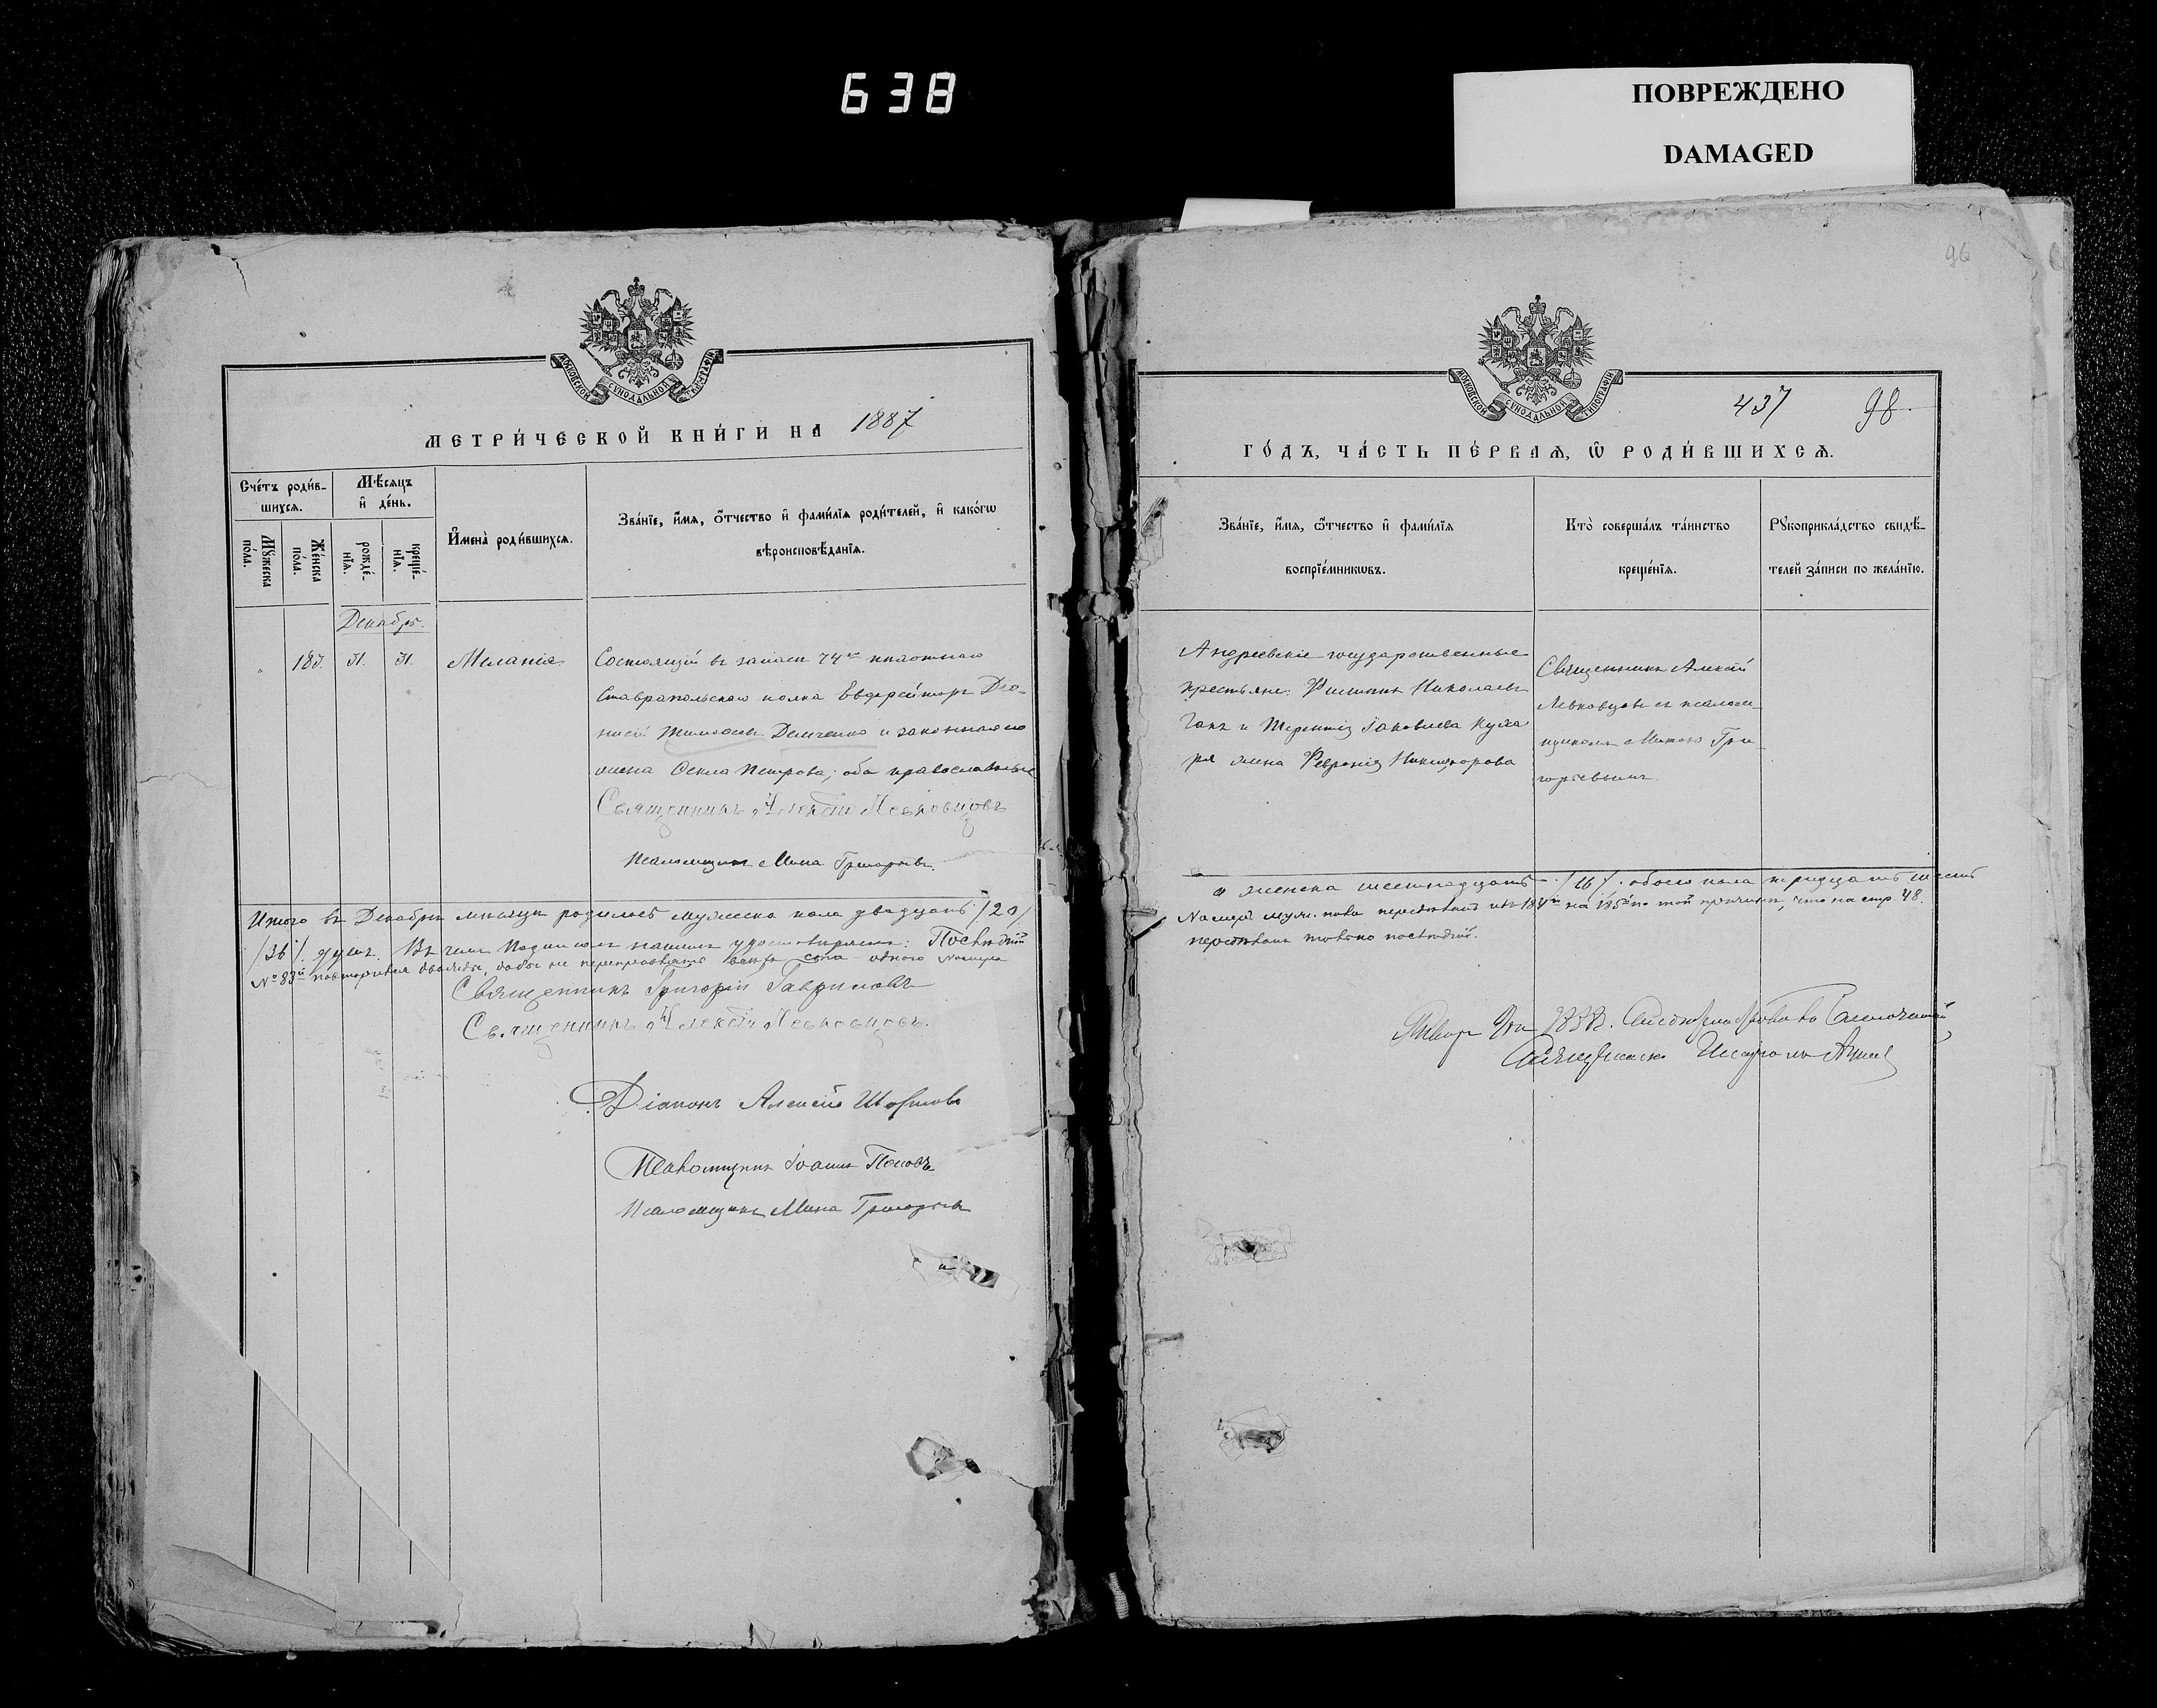 638
ПОВРЕЖДЕНО
DAMAGED
96
МОСКОВСКОЙ СУНОДАЛЬНОЙ ТИПОГРАФІИ
МЕТРИ́ЧЕСКОЙ КНИ́ГИ НА 1887
Сче́тъ роди́в-
шихся.
Мѣ́сяцъ
и҆ де́нь.
Мꙋ́жеска
по́ла.
Же́нска
по́ла.
рожде́-
нїя.
креще́-
нїя.
И҆мена̀ роди́вшихся.
Зва́нїе, и҆́мя, ѻ҆́тчество и҆ фами́лїя роди́телей, и҆ како́гѡ
вѣроисповѣ́данїя.
Декабрь.
" 183. 31. 31. Меланія
Состоящій въ запасѣ 74го пѣхотнаго
Ставропольскаго полка Ефрейторъ Дїо-
нисій Демченко и законная его
жена Ѳекла Петрова; оба православные
Священникъ Алексій Левковцовъ
Псаломщикъ Мина Григорьевъ
Итого въ Декабрѣ мѣсяцѣ родилось мужеска пола двадцать /20/
/36/ душъ. Въ чемъ подписомъ нашимъ удостовѣряемъ: Послѣдній
№ 83й повторился дважды, дабы не
Священникъ Григорій Гавриловъ
Священникъ Алексій Левковцовъ.
Діаконъ Алексій
Псаломщикъ Іоаннъ Поповъ
Псаломщикъ Мина Григорьевъ
МОСКОВСКОЙ СУНОДАЛЬНОЙ ТИПОГРАФІИ
437 98.
ГО́ДЪ, ЧА́СТЬ ПЕ́РВАѦ, Ѡ҆ РОДИ́ВШИХСѦ.
Зва́нїе, и҆́мя, ѻ҆́тчество и҆ фами́лїя
воспрїе́мникѡвъ.
Кто̀ соверша́лъ та́инство
креще́нїя.
Рꙋкоприкла́дство свидѣ́-
телей за́писи по жела́нїю.
Андреевскіе государственные
крестьяне: Филиппъ Николаевъ
Ганъ и Терентія Іаковлева Куха
ря жена Февронія Никифорова
Священникъ Алексій
Левковцовъ съ псалом-
щикомъ Миною Гри-
горьевымъ.
и женска шестнадцать /16/. обоего пола тридцать шесть
Номеръ муж. пола на 185й по той причинѣ, что на стр 48.
Священникъ